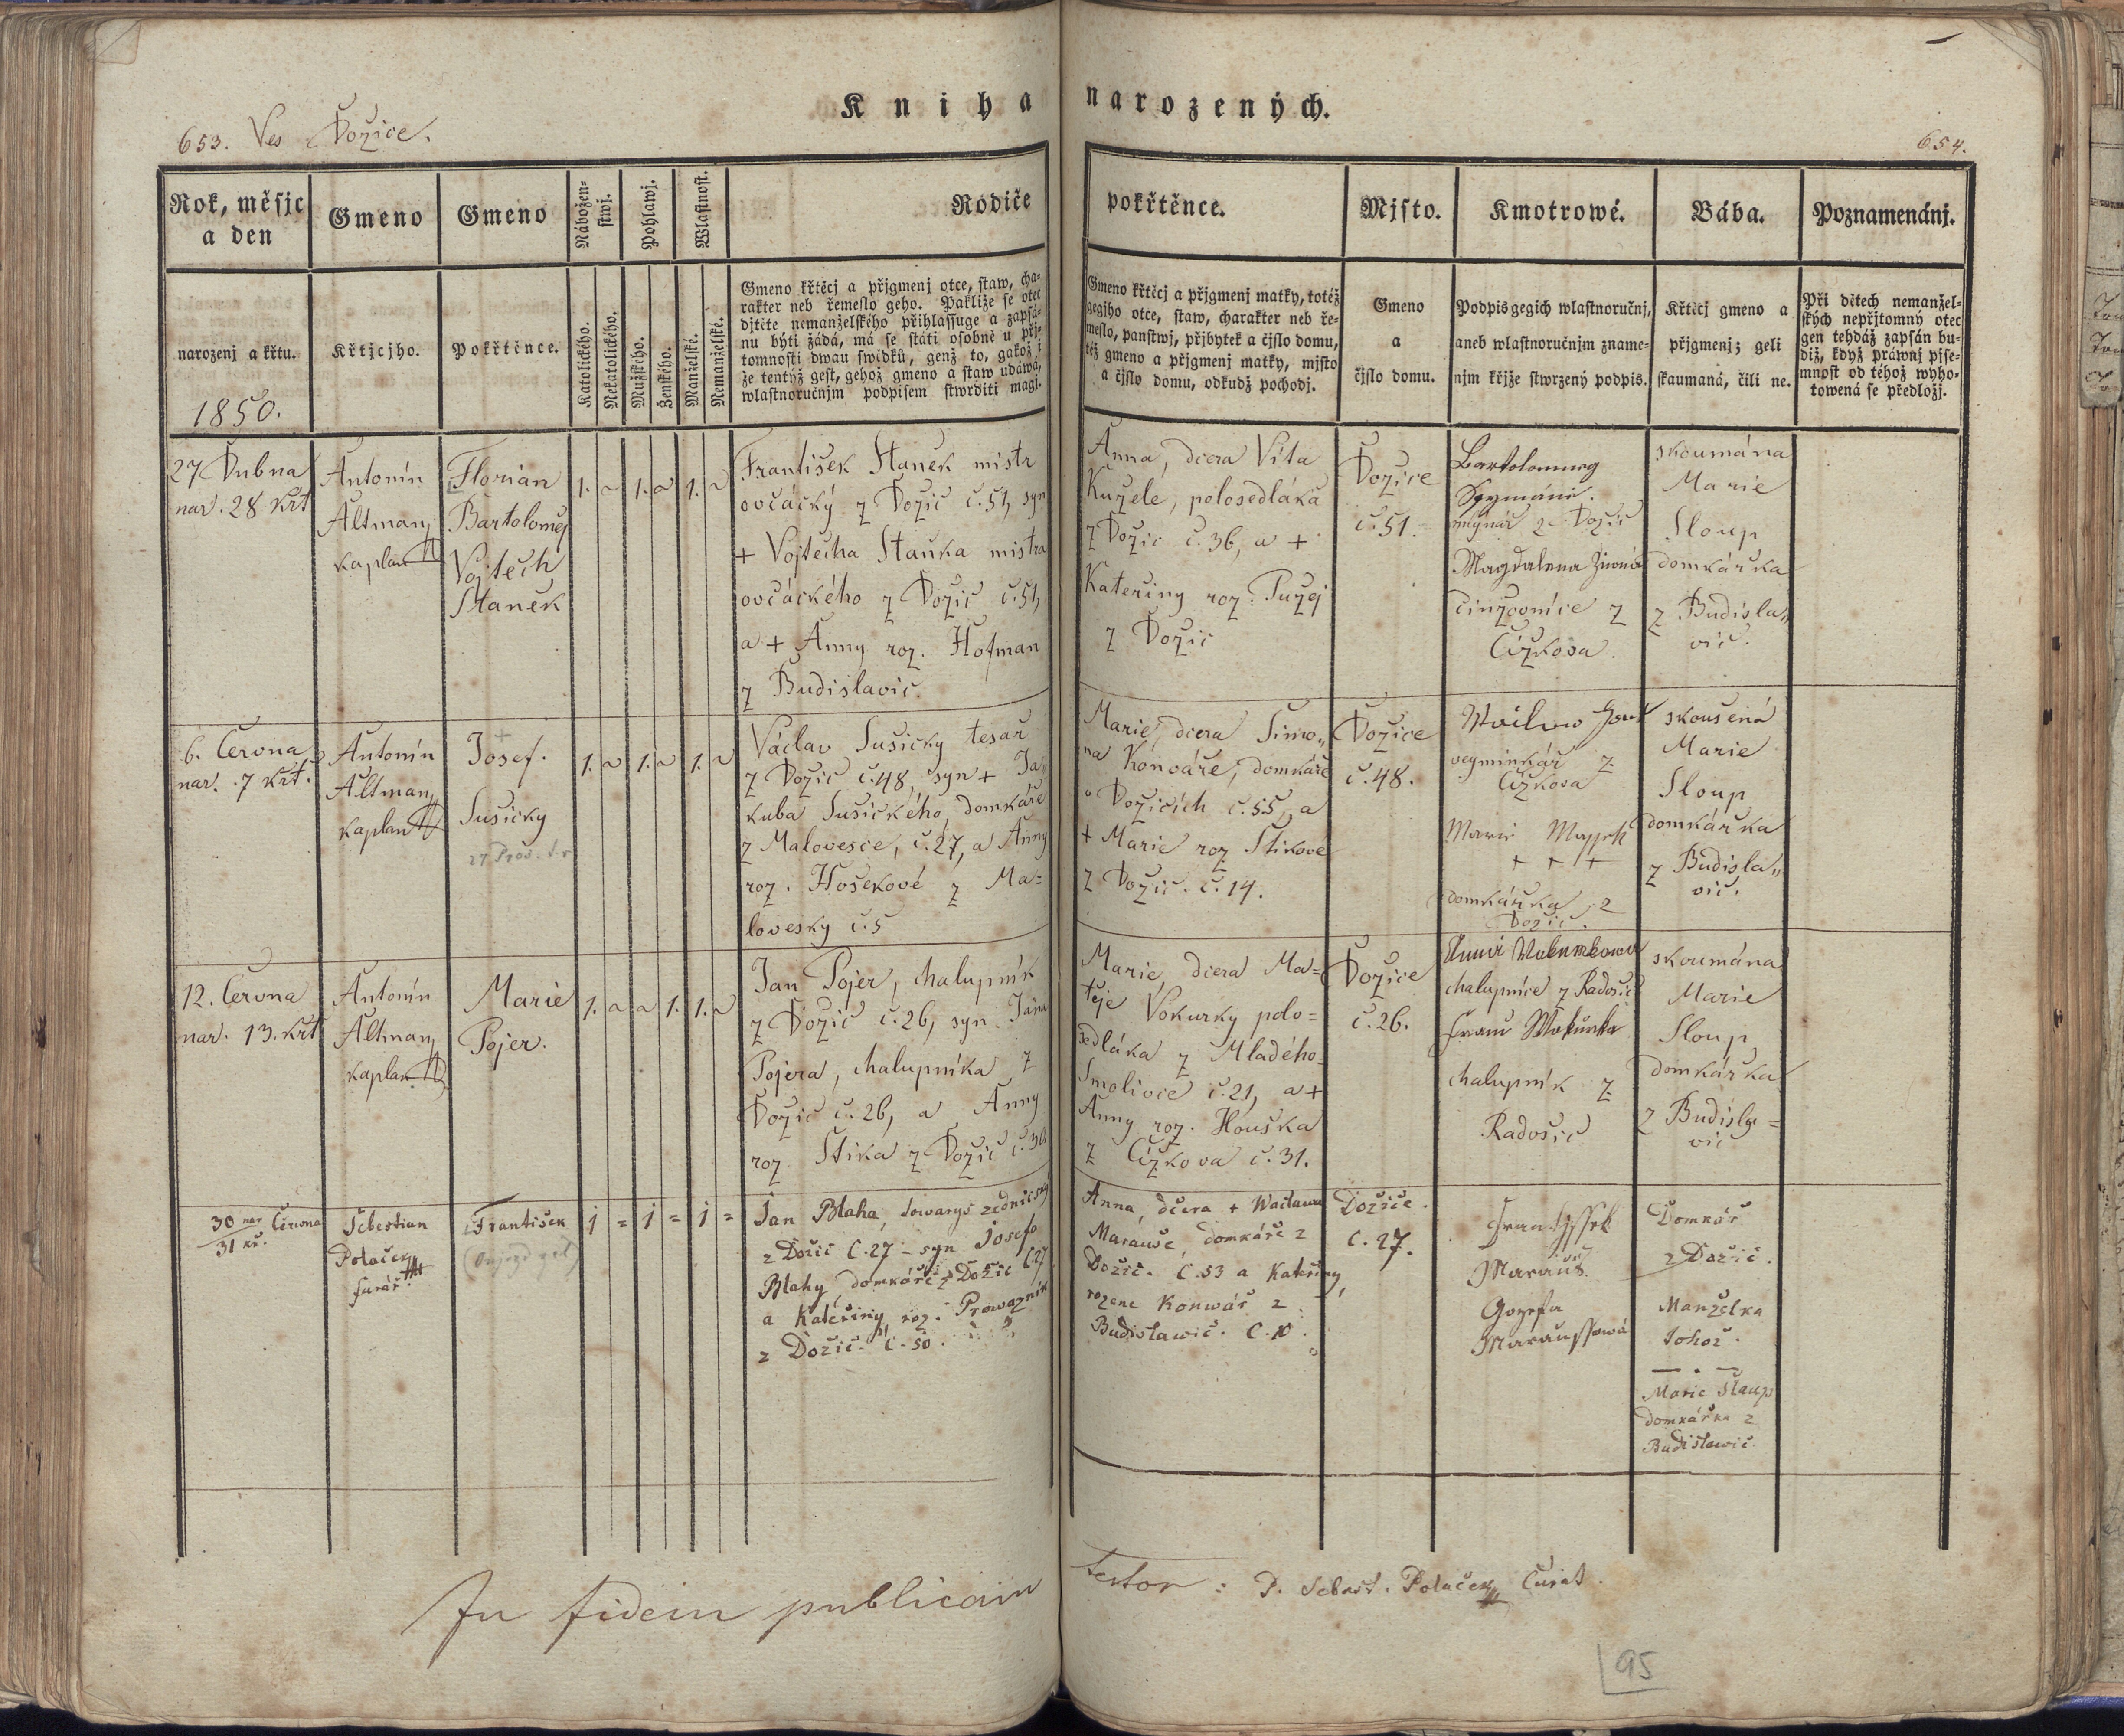 Kniha narozených.
653. Ves Dožice.
654.
Rok, měsjc
a den
Gmeno
Gmeno
Nábožen-
stwj.
Pohlawj.
Wlastnost.
Rodiče
pokřtěnce.
Mjsto.
Kmotrowé.
Bába.
Poznamenánj.
narozenj a křtu.
1850.
Křtjcjho.
Pokřtěnce.
Katolického.
Nekatolického.
Mužského.
Ženského.
Manželské.
Nemanželské.
Gmeno křtěcj a přjgmenj otce, staw, cha-
rakter neb řemeslo geho. Pakliže se otec
djtěte nemanželského přihlassuge a zapsá-
nu býti žádá, má se státi osobně u přj-
tomnosti dwau swědků, genž to, gakož i
že tentýž gest, gehož gmeno a staw udáwá,
wlastnoručnjm podpisem stwrditi magj.
Gmeno křtěcj a přjgmenj matky, totéž
gegjho otce, staw, charakter neb ře-
meslo, panstwj, přjbytek a čjslo domu,
též gmeno a přjgmenj matky, mjsto
a čjslo domu, odkudž pochodj.
Gmeno
a
čjslo domu.
Podpis gegich wlastnoručnj,
aneb wlastnoručnjm zname-
njm křjže stwrzený podpis.
Křtěcj gmeno a
přjgmenj; geli
skaumaná, čili ne.
Při dětech nemanžel-
ských nepřjtomný otec
gen tehdáž zapsán bu-
diž, když práwnj pjse-
mnost od téhož wyho-
towená se předložj.
27 Dubna
nar. 28 křt
Antonín
Altman
kaplan
Florián
Bartoloměj
Vojtěch
Staněk
1. ~ 1. ~ 1. ~
František Staněk mistr
ovčácký z Dožic č. 51, syn
+ Vojtěcha Staňka mistra
ovčáckého z Dožic č. 51,
a + Anny roz. Hofman
z Budislavic.
Anna, dcera Víta
Kužele, polosedláka
z Dožic č. 36, a +
Kateřiny roz. Pužej
z Dožic
Dožice
č. 51.
Bartolomneg
mlynář z Dožic
Magdalena
činžovnice z
Čížkova.
skoumána
Marie
Sloup
domkářka
z Budisla„
vic.
6. Června
nar. 7 křt.
Antonín
Altman
kaplan
Josef.
Sušický
1. ~ 1. ~ 1. ~
Václav Sušický tesař
z Dožic č. 48, syn + Ja-
kuba Sušického, domkáře
z Malovesce, č. 27, a Anny
roz. Hošekové z Ma=
lovesky č. 5
Marie, dcera Šimo„
na Konváře, domkáře
v Dožicích č. 55, a
+ Marie roz Štikové
z Dožic. č. 14.
Dožice
č. 48.
vegminkář z
Čížkova
Marie
+ + +
domkářka z
Dožic.
skoušená
Marie
Sloup
domkářka
z Budisla„
vic.
12. Června
nar. 13. křt
Antonín
Altman
kaplan
Marie
Pojer.
1. ~ ~ 1. 1. ~
Jan Pojer, chalupník
z Dožic č. 26, syn Jana
Pojera, chalupníka z
Dožic č. 26, a Anny
roz. Štika z Dožic č. 36
Marie, dcera Ma=
těje Vokurky polo=
sedláka z Mladého-
Smolivce č. 21, a +
Anny roz. Houška
z Čížkova č. 31.
Dožice
č. 26.
Anna
chalupnice z Radošic
chalupník z
Radošic
skoumána
Marie
Sloup
domkářka
z Budisla=
vic
30 nar Června
31 kř.
Šebestian
Polaček
kurář.
František
j = j = j =
Jan Blaha, towaryš zednicský
z Dožic č. 27 - syn Josefa
Blahy, domkáře z Dožic č. 27
a Kateřiny, roz. Prowazník
z Dožic. č. 50.
Anna, dcera + Wáclawa
Marauše, domkáře z
Dožic. č. 53 a Kateřiny,
rozene Konwář z
Budislawic. č. 10.
Dožice.
č. 27.
Frantyssek
Marauš.
Gozefa
Maraussowá
Domkář
z Dožic.
Manželka
tohož.
Marie Slaup
domkářka z
Budislawic.
In fidem publicam testor: P. Sebast. Polaček Curat.
95